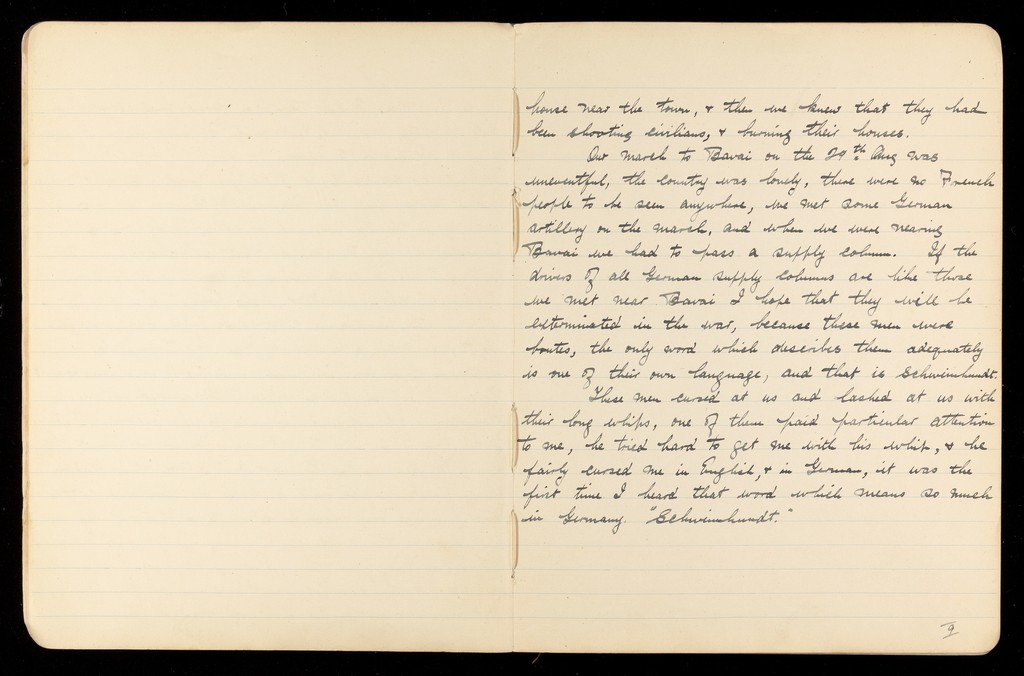 house near the town, & then we knew that they had
been shooting civilians, & burning their houses.
Our march to Bavai on the 29th Aug was
uneventful, the country was lovely, there were no French
people to be seen anywhere, we met some German
artillery on the march, and when we were nearing
Bavai we had to pass a supply column. If the
drivers of all German supply columns are like those
we met near Bavai I hope that they will be
exterminated in the war, because these men were
brutes, the only word which describes them adequately
is one of their own language, and that is Schweinhundt.
These men cursed at us and lashed at us with
their long whips, one of them paid particular attention
to me, he tried hard to get me with his whip, & he
fairly cursed me in English, & in German, it was the
first time I heard that word which means so much
in Germany. "Schweinhundt."
9